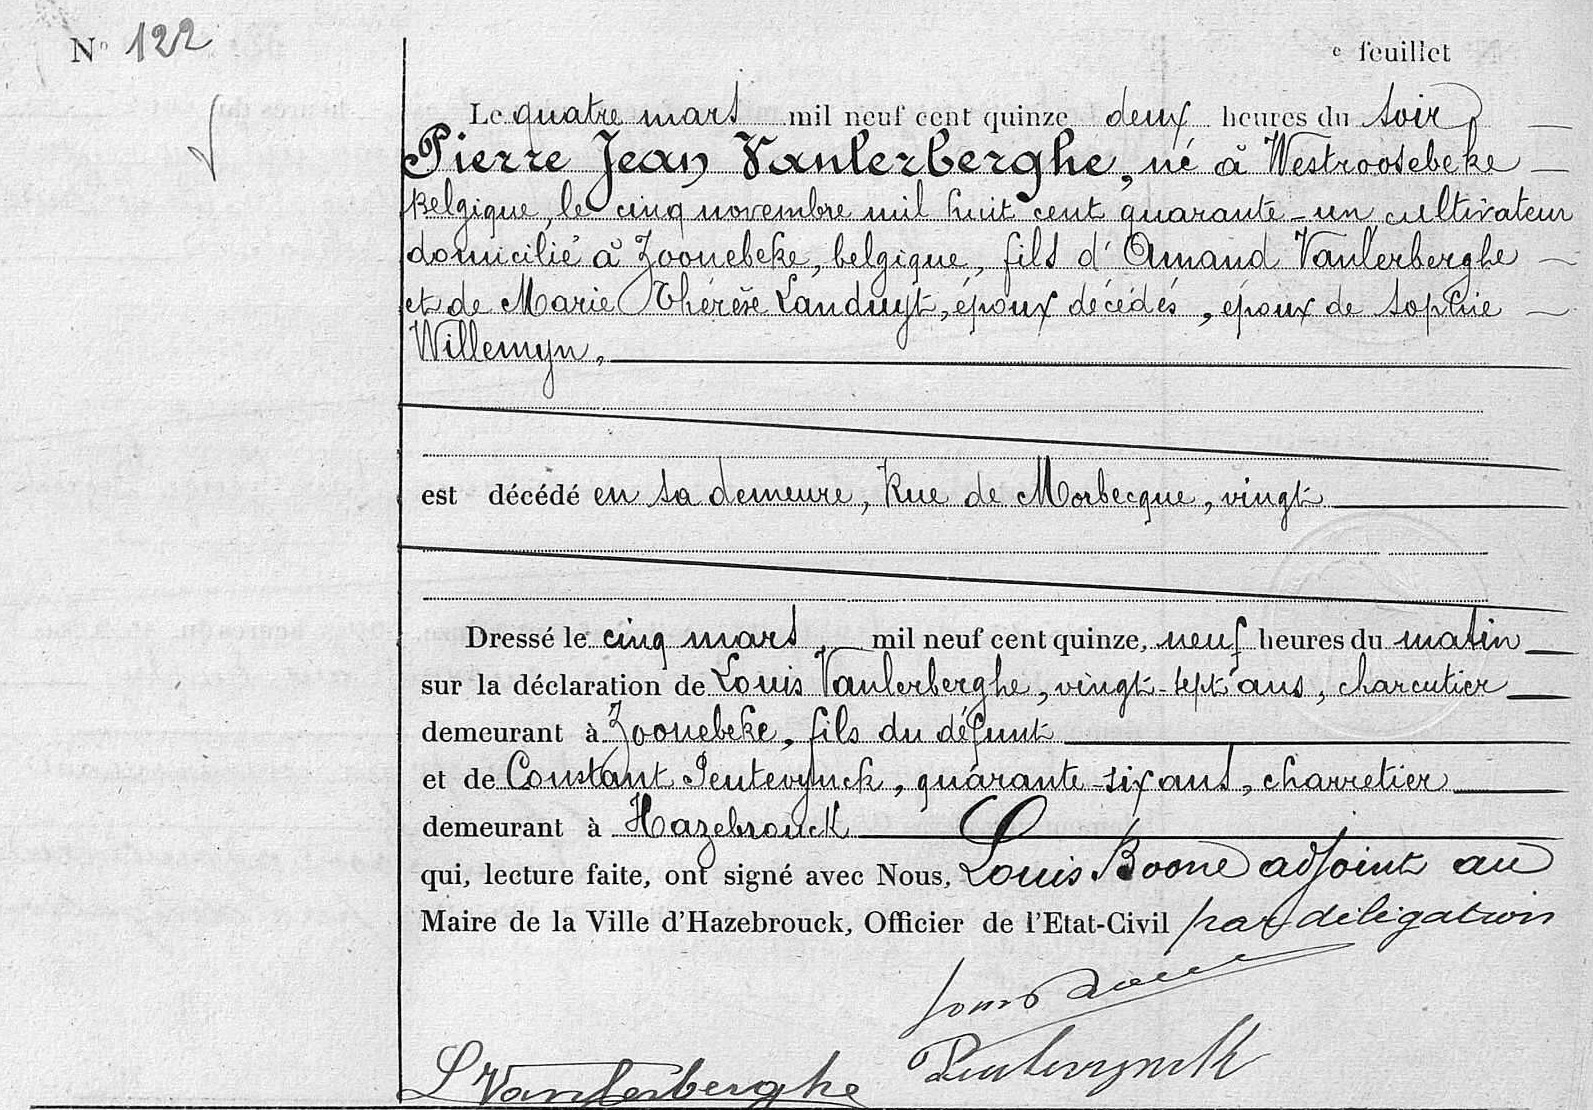 N° 122
e feuillet
Le quatre mars mil neuf cent quinze deux heures du soir
Pierre Jean Vanlerberghe, né à Westroosebeke
Belgique, le cinq novembre mil huit cent quarante-un cultivateur
domicilié à Zoonebeke, belgique, fils d'Amand Vanlerberghe
et de Marie Thérèse Landuyt, époux décédés, époux de Sophie
Willemyn,
est décédé en sa demeure, Rue de Morbecque, vingt
Dressé le cinq mars, mil neuf cent quinze, neuf heures du matin
sur la déclaration de Louis Vanlerberghe, vingt-sept ans, charcutier
demeurant à Zoonebeke, fils du défunt
et de Constant Peuterynck, quarante-six ans, charretier
demeurant à Hazebrouck
qui, lecture faite, ont signé avec Nous, Louis Boone adjoint au
Maire de la Ville d'Hazebrouck, Officier de l'Etat-Civil par délégation
Louis Boone
Peuterynck
L Vanlerberghe